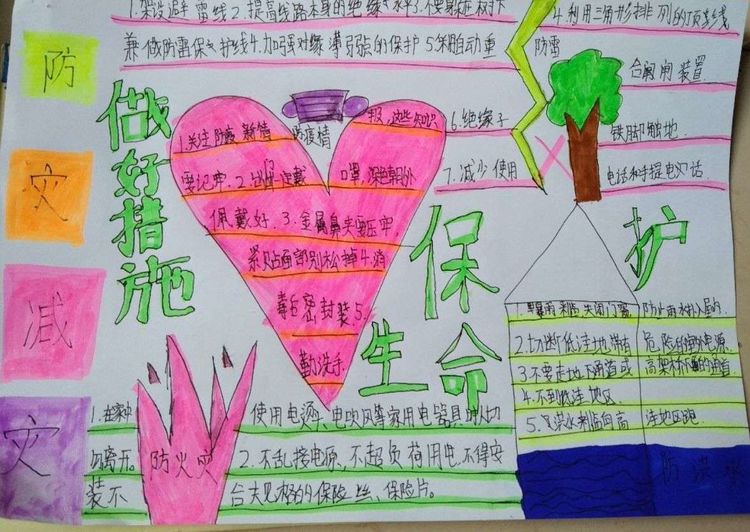 防
灾
减
灾
做好措施
保护
生命
1.架设避雷线2.提高线路本身的绝缘水平3.不要躲在树下
兼做防雷保护线4.加强对
弱强的保护5.采用自动重
4.利用三角形排列的顶线
防雷
合闸
装置
6.绝缘子
7.减少使用
铁脚
地
电话和手提电话
防疫情
1.关注防疫新情
那,这些知识
要记牢.2.
戴
口罩,深色朝外
佩戴好.3.金属鼻夹要压牢,
紧贴面部别松掉4.消
毒后密封装.5.
勤洗手.
防火灾
1.在家中
使用电烫、电吹风等家用电器具时人切
勿离开。
2.不乱接电源,不超负荷用电.不得安
装不
合规格的保险丝、保险片。
1.暴雨来临关闭门窗
防止雨水
屋内
2.切断低洼地带有
危险的
电源
3.不要走地下通道或
高架桥下面的通道
4.不到低洼地区
5.
水来临向高
洼地区跑
防洪水